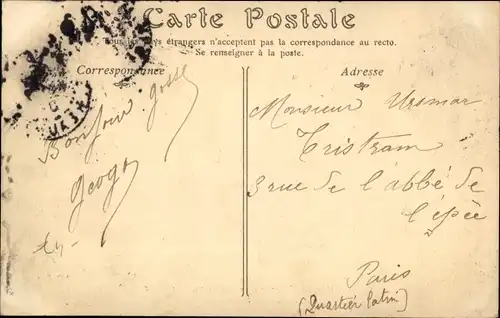 Carte Postale
pays étrangers n'acceptent pas la correspondance au recto.
Se renseigner à la poste.
Correspondance
Adresse
Bonjour gosse
Monsieur
Tristram
3 rue de l'abbé de
l'épée
Paris
(Quartier latin)